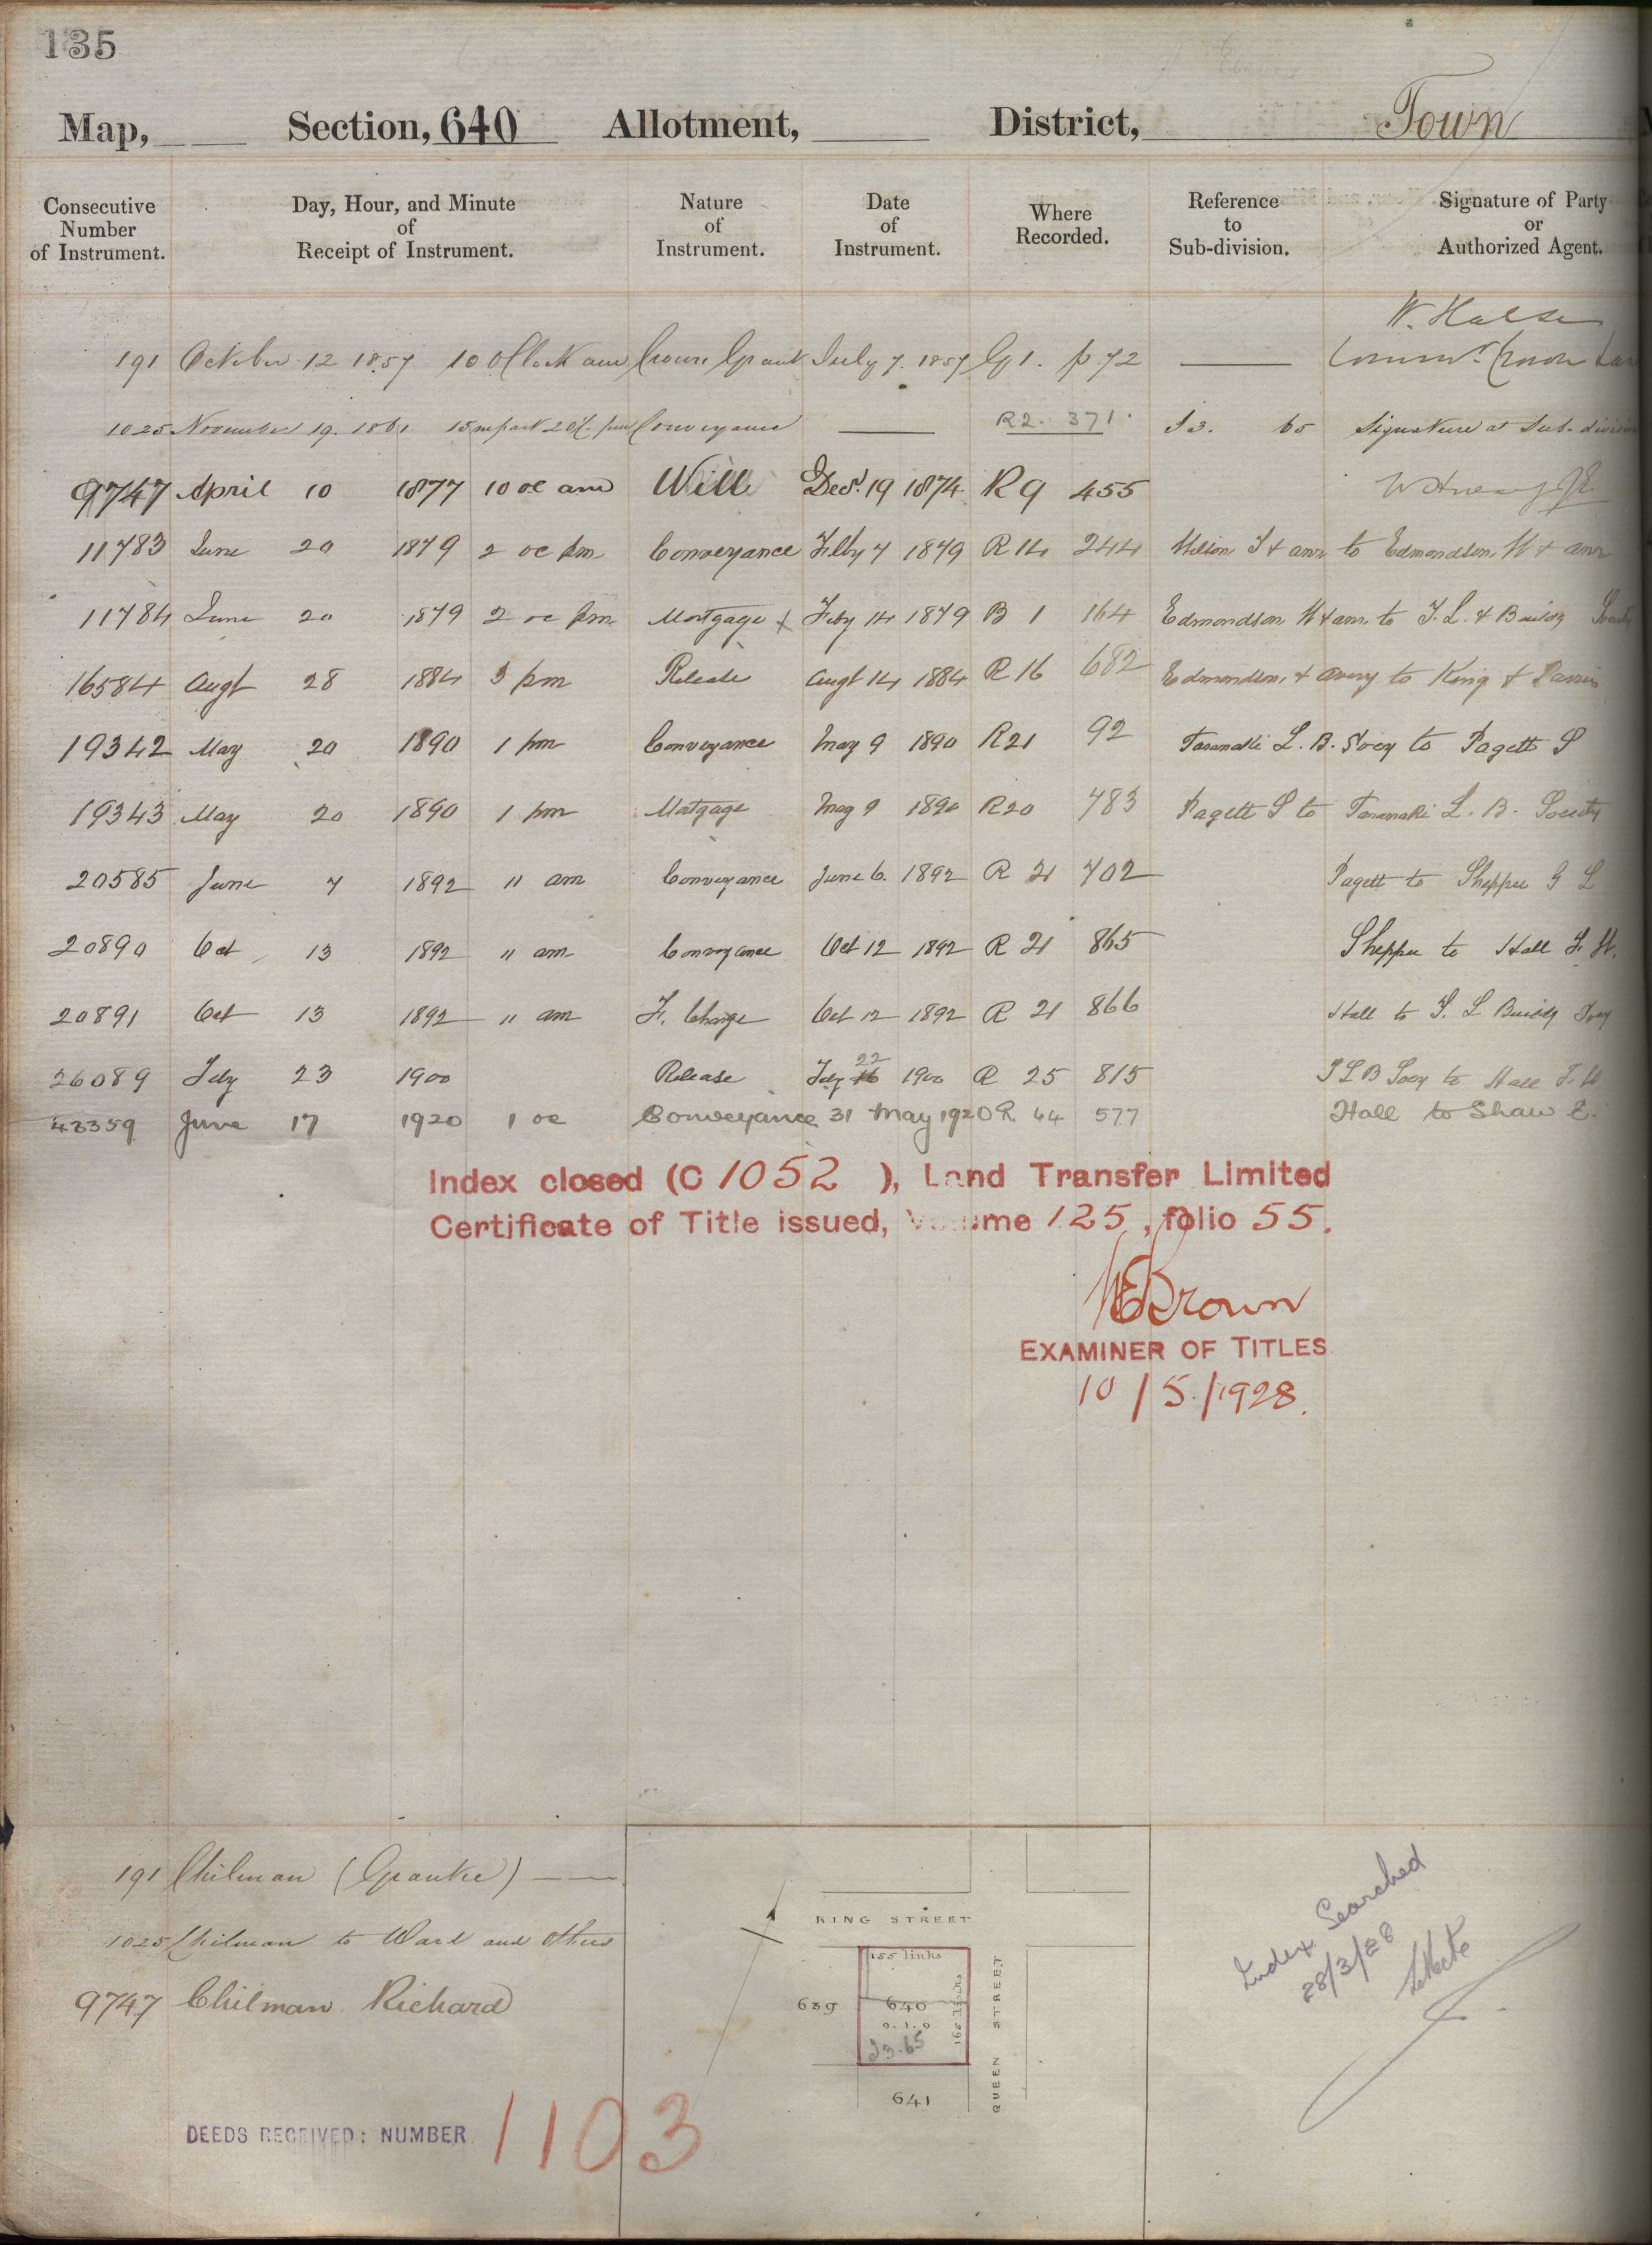 135
Map, Section, 640 Allotment, District, Town
Consecutive Number of Instrument. Day, Hour, and Minute of Receipt of Instrument. Nature of Instrument. Date of Instrument. Where Recorded. Reference to Sub-division. Signature of Party or Authorized Agent.
W. Halse
191 October 12 1857 10 O Clock am Crown Grant July 7. 1857 G 1. p 72 Commr. Crown
1025 November 19. 1861 15 m past 2 pm Conveyance R2. 371. J3. 65 Signature at Sub-division
9747 April 10 1877 10 oc am Will Decr. 19 1874 R9 455
11783 June 20 1879 2 oc pm Conveyance Feby 7 1879 R 14 244 Wilson T & anr to Edmondson. W & anr
11784 June 20 1879 2 oc pm Mortgage x Feby 14 1879 B 1 164 Edmondson W & anr. to T. L. & Buildg Society
16584 Augt 28 1884 3 pm Release Augt 14 1884 R 16 682 Edmondson & Avery to King &
19342 May 20 1890 1 pm Conveyance May 9 1890 R21 92 Taranaki L. B. Socy to Pagett S
19343 May 20 1890 1 pm Mortgage May 9 1890 R20 783 Pagett S to Taranaki L. B. Society
20585 June 7 1892 11 am Conveyance June 6. 1892 R 21 702 Pagett to Sheppee G L
20890 Oct 13 1892 11 am Conveyance Oct 12 1892 R 21 865 Sheppee to Hall F. W.
20891 Oct 13 1892 11 am F. Charge Oct 12 1892 R 21 866 Hall to T. L Buildg Socy
26089 Feby 23 1900 Release Feby 16 22 1900 R 25 815 T L B Socy to Hall F. W
43359 June 17 1920 1 oc Conveyance 31 May 1920 R. 44 577 Hall to Shaw E.
Index closed (C 1052 ), Land Transfer Limited
Certificate of Title issued, Volume 125, folio 55.
Brown
EXAMINER OF TITLES
10/5/1928.
191 Chilman (Grantee)
1025 Chilman to Ward and Others
9747 Chilman Richard
DEEDS RECEIVED: NUMBER 1103
KING STREET
155 links
639
640
0. 1. 0
165 links
J3.65
641
QUEEN STREET
Index Searched
28/3/28